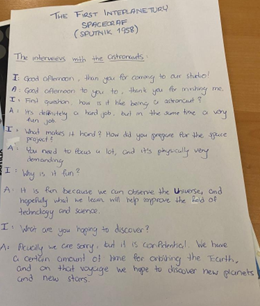 THE FIRST INTERPLANETARY
SPACECRAF
(SPUTNIK 1958)
The interviews with the Astronauts:
I: Good afternoon, than you for coming to our studio!
A: Good afternoon to you to, thank you for inviting me.
I: First question, how is it like being a astronaut?
A: Its definitely a hard job, but in the same time a very
fun job.
I: What makes it hard? How did you prepare for the
project?
A: You need to focus a lot, and it's physically very
demanding.
I: Why is it fun?
A: It is fun because we can observe the Universe, and
hopefully what we learn will help improve the field of
technology and science.
I: What are you hoping to discover?
A: Actually we are sorry, but it is confidential. We have
a certain amount of time for orbiting the Earth,
and on that voyage we hope to discover new planets
and new stars.